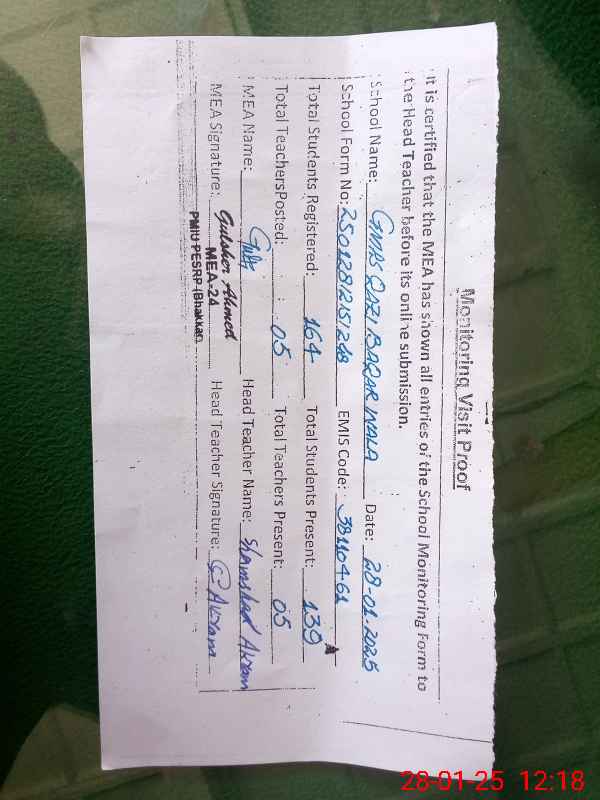 Monitoring Visit Proof
It is certified that the MEA has shown all entries of the School Monitoring Form to
the Head Teacher before its online submission.
School Name: GMPS QAZI BAQAR WALA Date: 28-01-2025
School Form No: 25012812151248 EMIS Code: 38110461
Total Students Registered: 164 Total Students Present: 139
Total TeachersPosted: 05 Total Teachers Present: 05
MEA Name: Head Teacher Name: Shamshad
MEA Signature: Gulsher Ahmed Head Teacher Signature:
MEA-24
PMIU PESRP (Bhakkar)
28-01-25 12:18